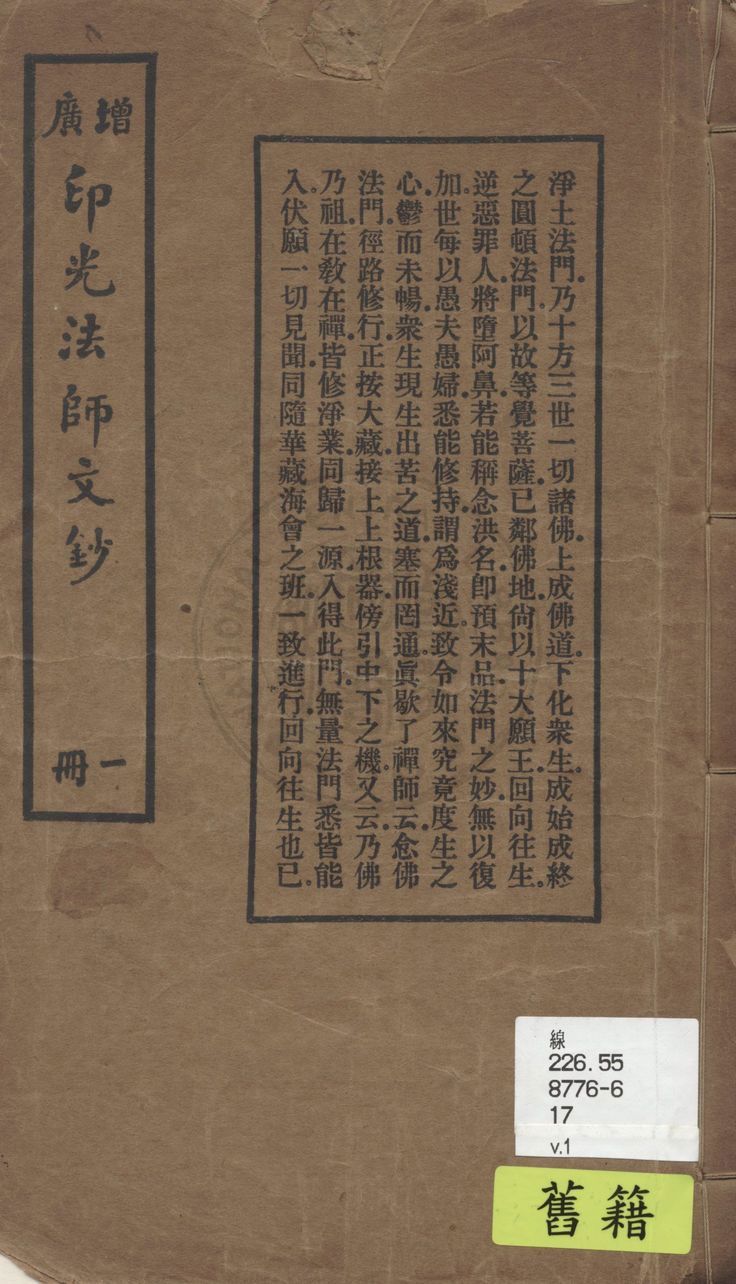 淨土法門.乃十方三世一切諸佛.上成佛道.下化衆生.成始成終
之圓頓法門.以故等覺菩薩.已鄰佛地.尙以十大願王.回向往生.
逆惡罪人.將墮阿鼻.若能稱念洪名.卽預末品.法門之妙.無以復
加.世每以愚夫愚婦.悉能修持.謂爲淺近.致令如來究竟度生之
心.鬱而未暢.衆生現生出苦之道.塞而罔通.眞歇了禪師云.念佛
法門.徑路修行.正按大藏.接上上根器.傍引中下之機.又云.乃佛
乃祖.在敎在禪.皆修淨業.同歸一源.入得此門.無量法門.悉皆能
入.伏願一切見聞.同隨華藏海會之班.一致進行.回向往生也已.
增廣
印光法師文鈔
一冊
線
226.55
8776-6
17
v.1
舊籍